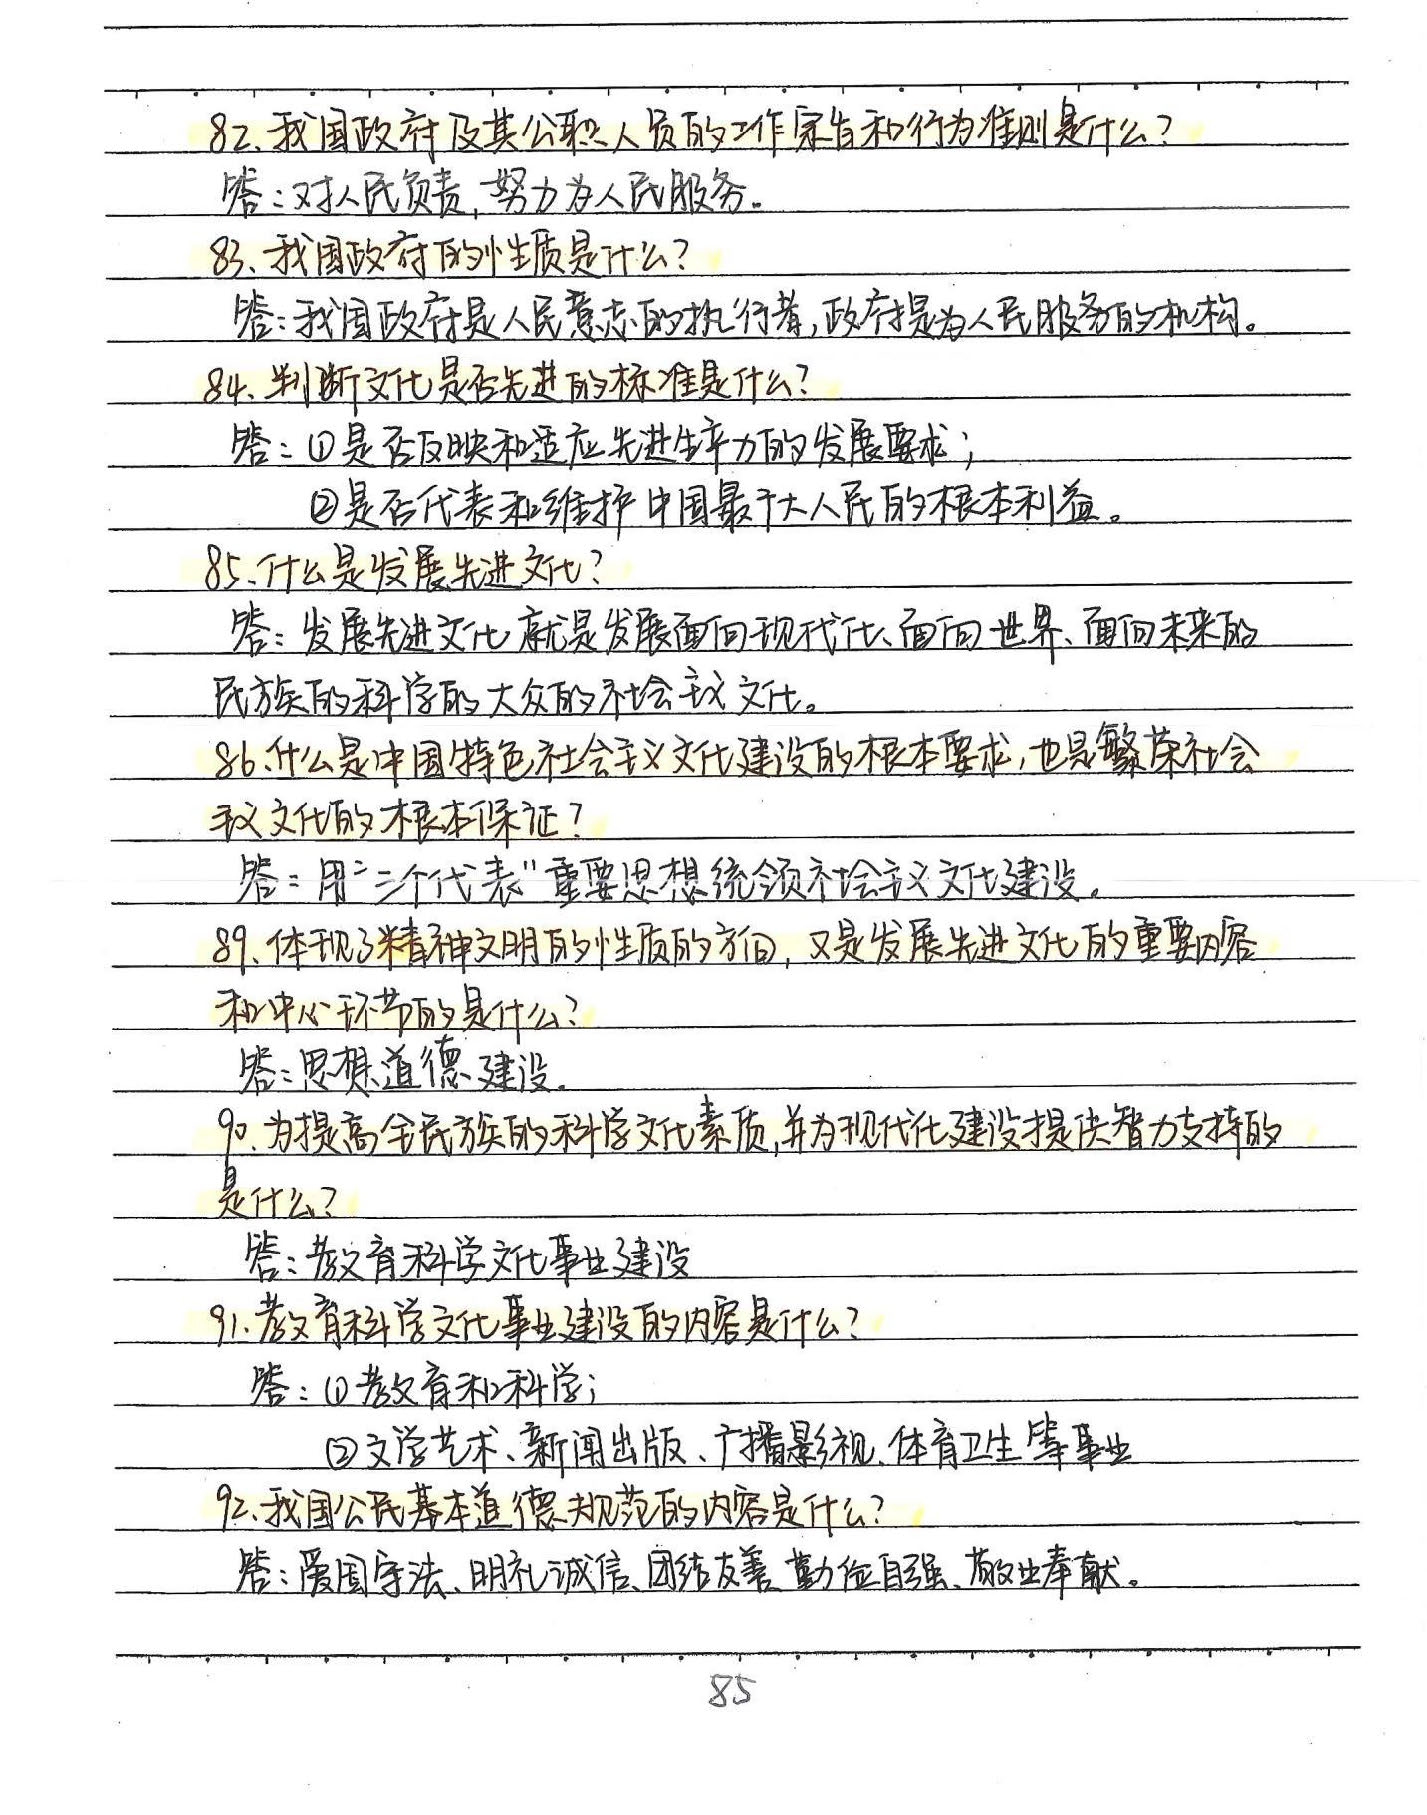 82、我国政府及其公职人员的工作宗旨和行为准则是什么?
答:对人民负责,努力为人民服务。
83、我国政府的性质是什么?
答:我国政府是人民意志的执行者,政府是为人民服务的机构。
84、判断文化是否先进的标准是什么?
答:①是否反映和适应先进生产力的发展要求;
②是否代表和维护中国最广大人民的根本利益。
85、什么是发展先进文化?
答:发展先进文化就是发展面向现代化、面向世界、面向未来的
民族的科学的大众的社会主义文化。
86、什么是中国特色社会主义文化建设的根本要求,也是繁荣社会
主义文化的根本保证?
答:用“三个代表”重要思想统领社会主义文化建设。
89、体现了精神文明的性质的方向,又是发展先进文化的重要内容
和中心环节的是什么?
答:思想道德建设。
90、为提高全民族的科学文化素质,并为现代化建设提供智力支持的
是什么?
答:教育科学文化事业建设
91、教育科学文化事业建设的内容是什么?
答:①教育和科学;
②文学艺术、新闻出版、广播影视、体育卫生等事业
92、我国公民基本道德规范的内容是什么?
答:爱国守法、明礼诚信、团结友善、勤俭自强、敬业奉献。
85